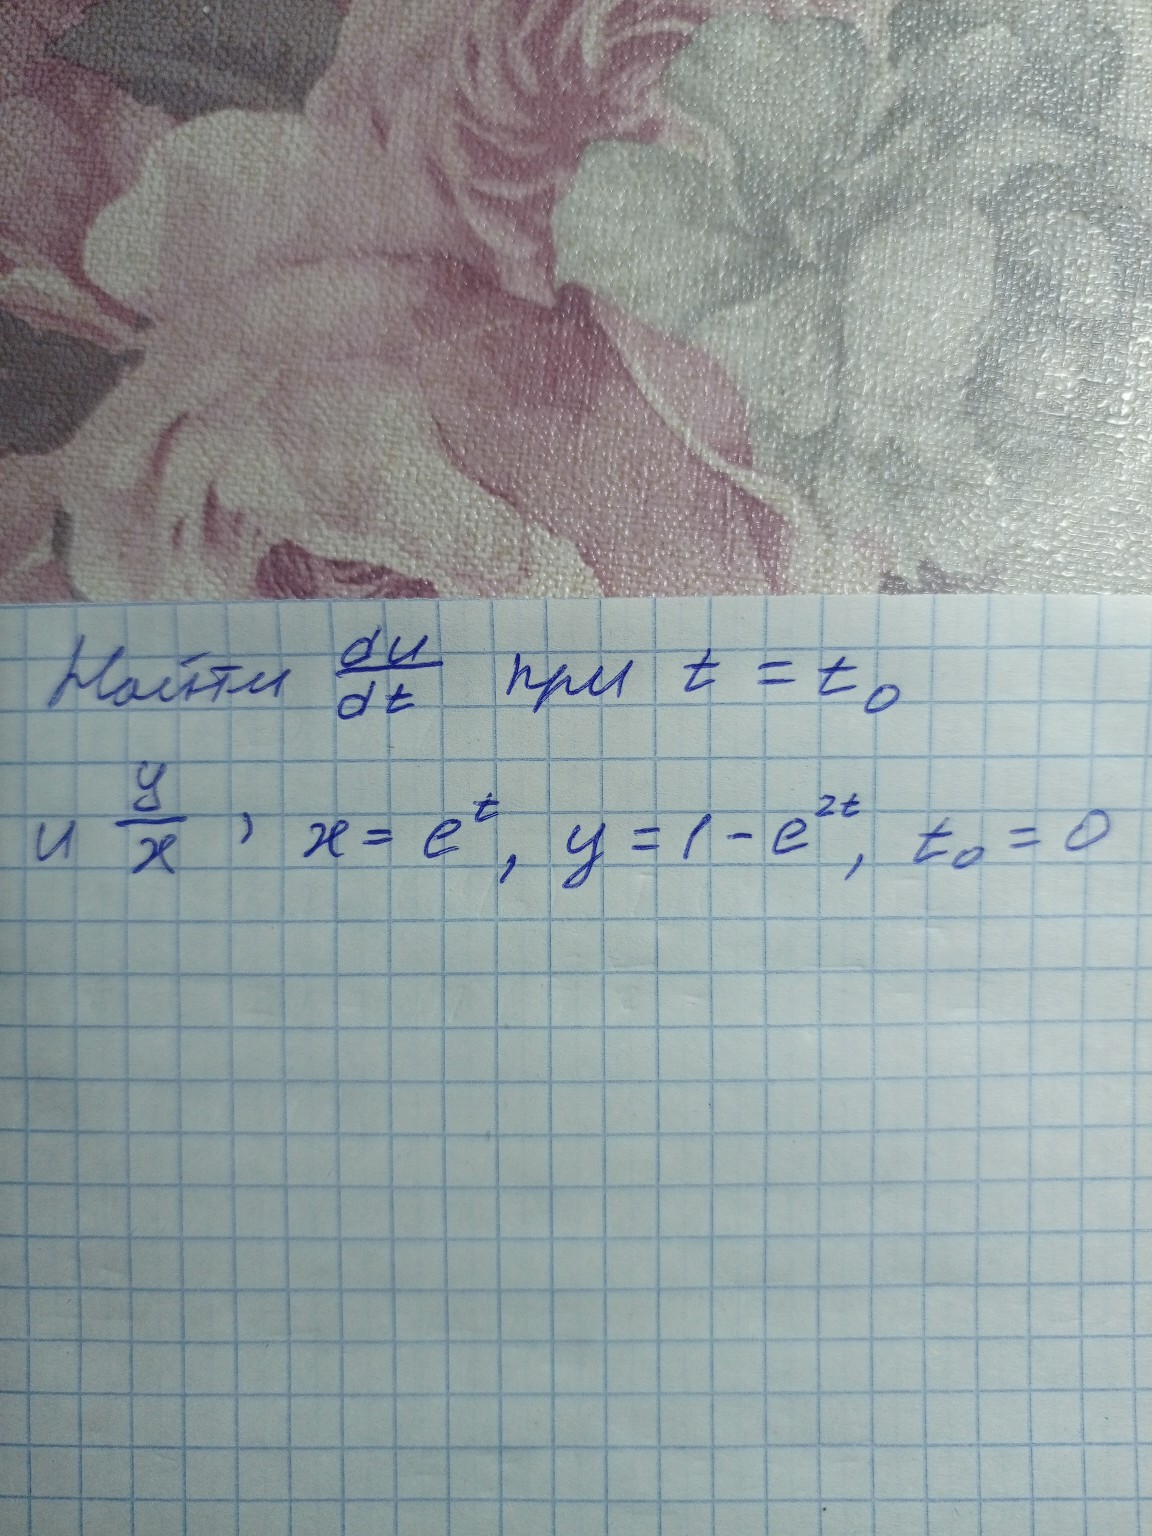 Найти du/dt при t = t₀
и y/x, x = e^t, y = 1 - e^{2t}, t₀ = 0